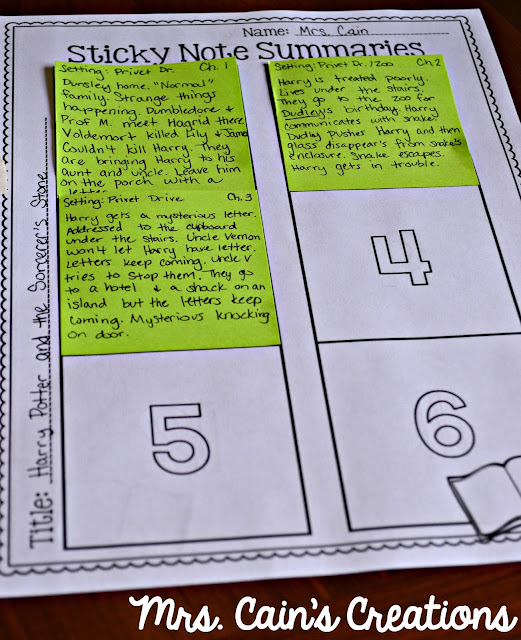 Name: Mrs. Cain
Sticky Note Summaries
Setting: Privet Dr. Ch. 1
Dursley home. "Normal"
family. Strange things
happening. Dumbledore &
Prof M. meet Hagrid there
Voldemort killed Lily & James
Couldn't kill Harry. They
are bringing Harry to his
aunt and uncle. Leave him
on the porch with a
letter.
Setting: Privet Dr. /Zoo Ch. 2
Harry is treated poorly.
Lives under the stairs.
They go to the zoo for
Dudley's birthday. Harry
communicates with snake.
Dudley pushes Harry and then
glass disappears from snake's
enclosure. Snake escapes.
Harry gets in trouble.
Setting: Privet Drive Ch. 3
Harry gets a mysterious letter.
Addressed to the cupboard
under the stairs. Uncle Vernon
won't let Harry have letter.
Letters keep coming. Uncle V
tries to stop them. They go
to a hotel & a shack on an
island but the letters keep
coming. Mysterious knocking
on door.
4
5
6
Title: Harry Potter and the Sorcerer's Stone
Mrs. Cain's Creations